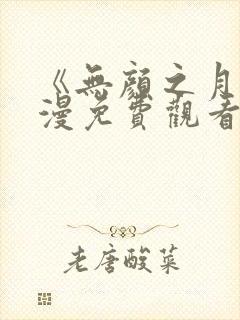 《無顏之月
漫免費觀看
老唐酸菜